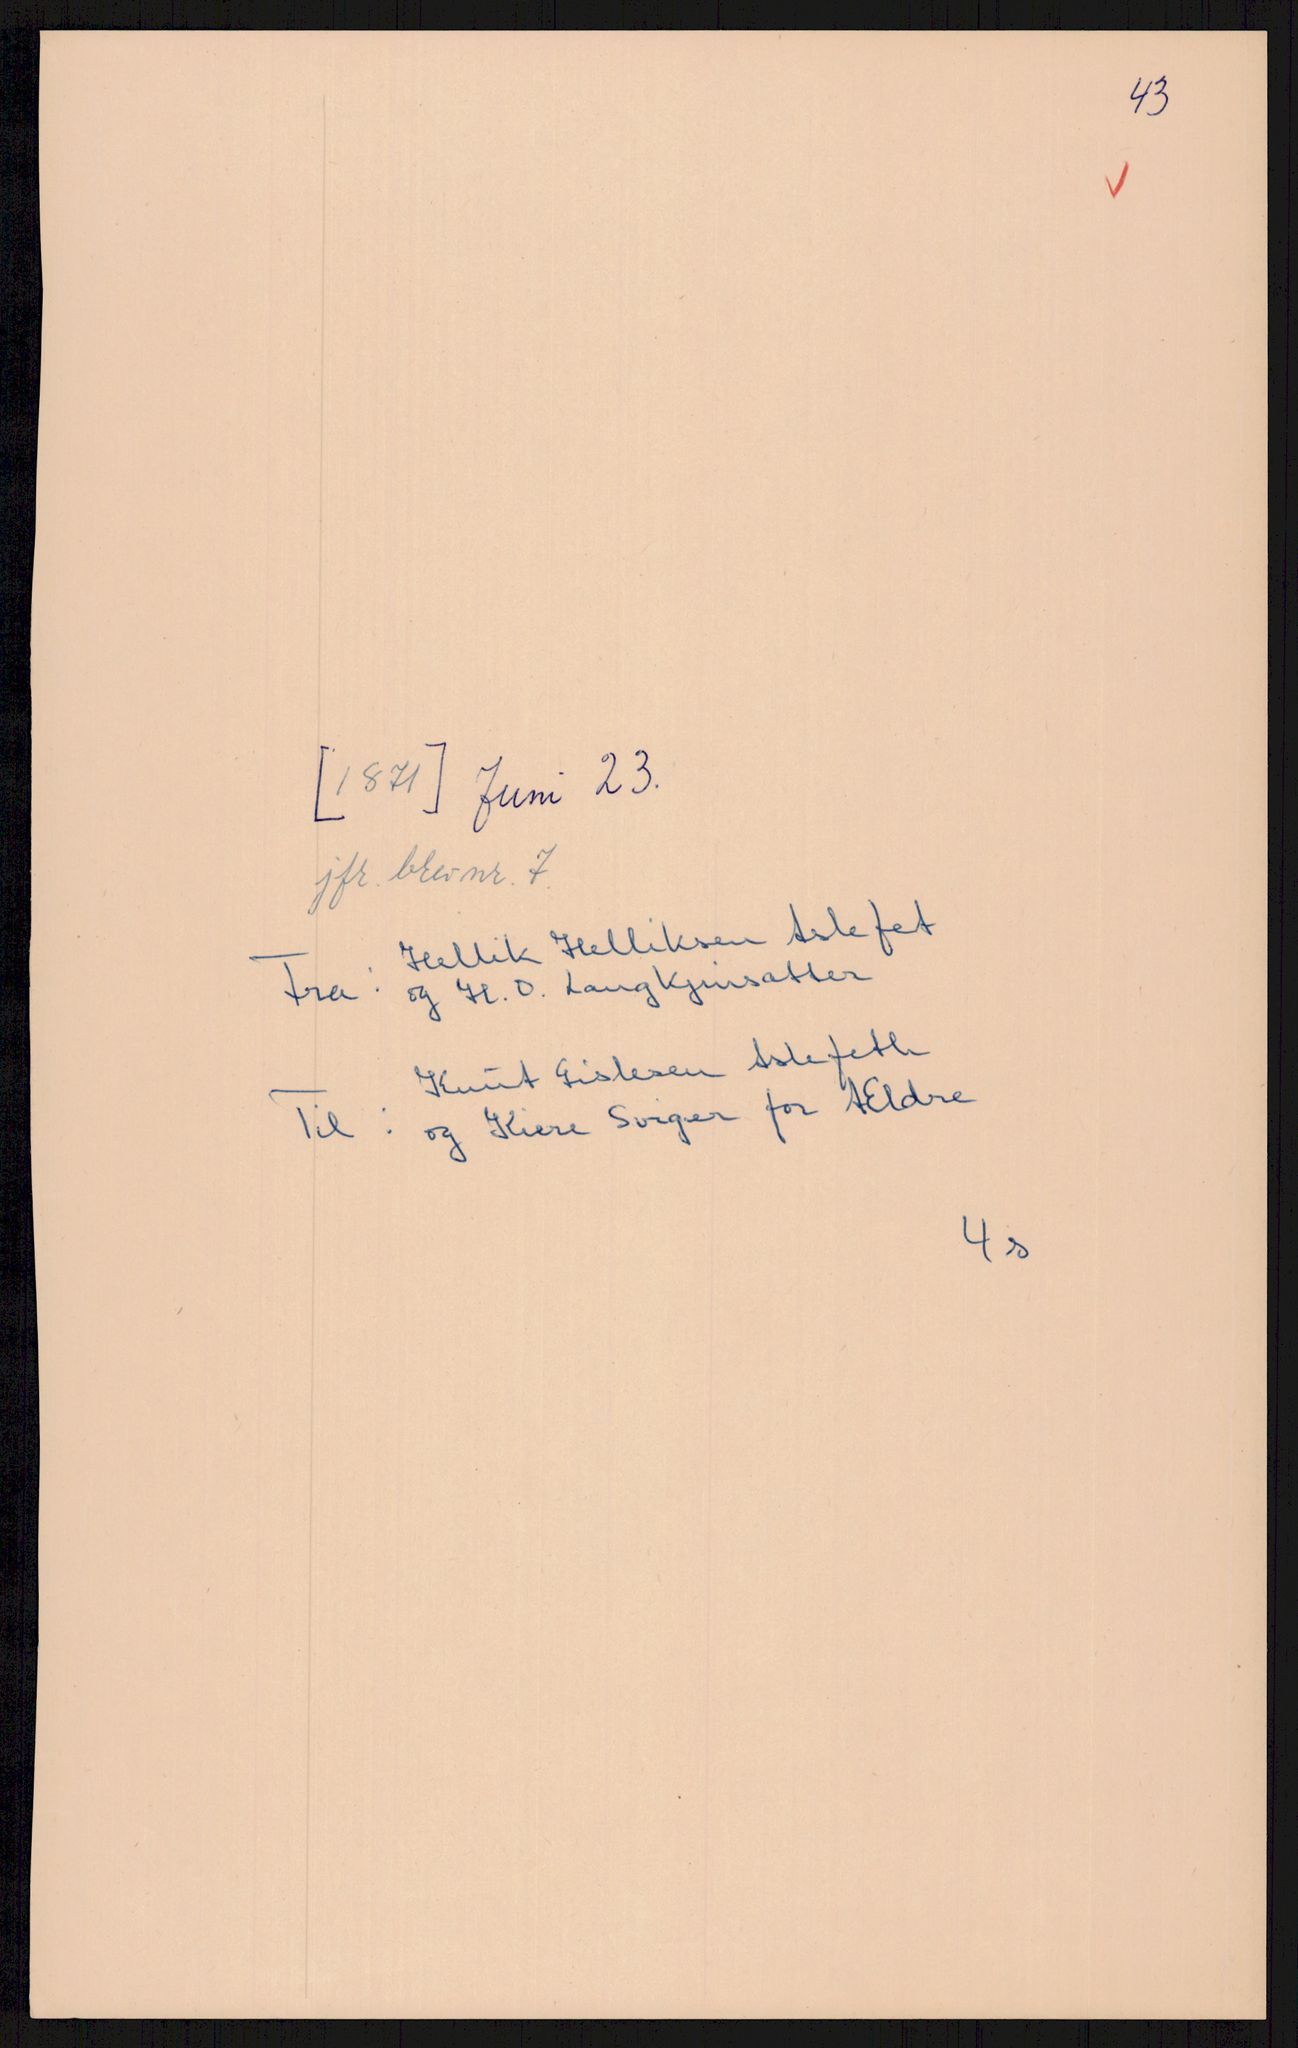 43
[1871] Juni 23.
jfr. brev nr. 7.
Fra: Hellik Helliksen Aslefet
og H. O. Langkjinsatter
Til: Knut Gislesen Aslefeth
og Kiere Sviger for AEldre
4 s